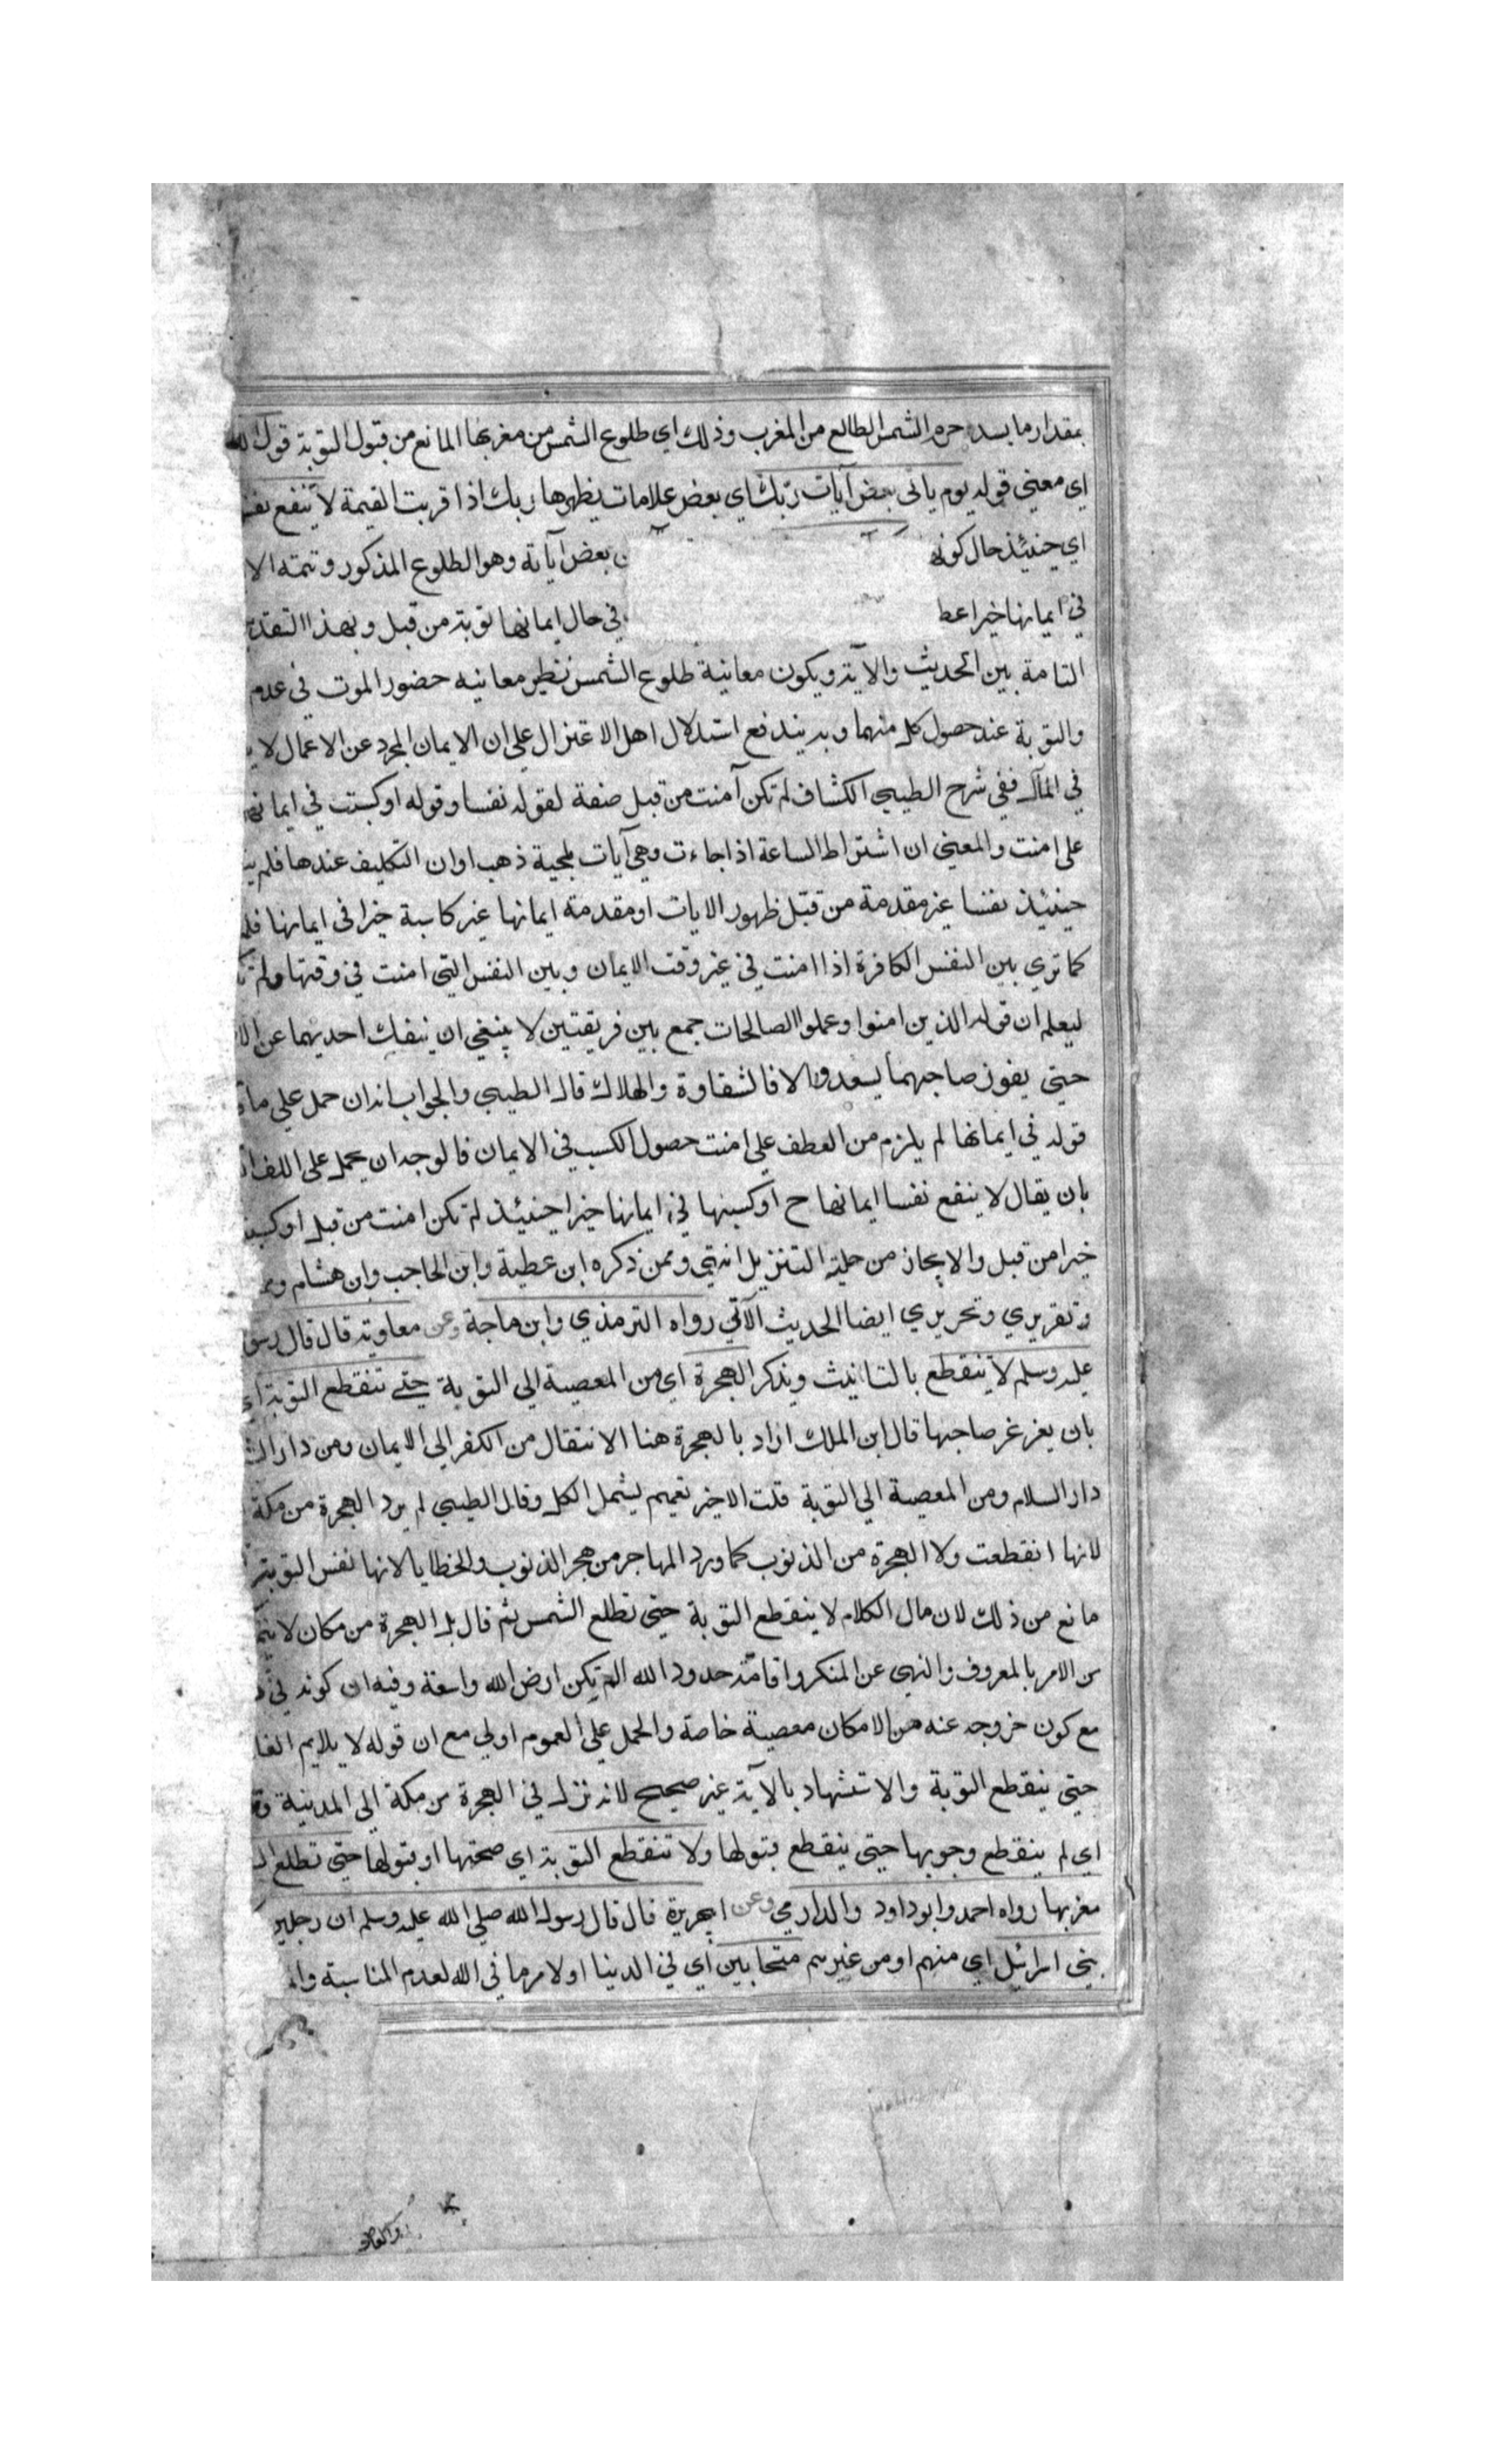 بمقدار ما يسد جرم الشمس الطالع من المغرب وذلك اي طلوع الشمس من مغربها المانع من قبول التوبة قول الله
اي معنى قوله يوم ياتى بعض آيات ربك اي بعض علامات يظهرها ربك اذا قربت القيمة لا ينفع نفسا
اي حينئذ حال كونه بعض آياته وهو الطلوع المذكور وتتمته الا
في ايمانها خيرا عط في حال ايمانها توبة من قبل وبهذا التقدير
التامة بين الحديث والآية ويكون معاينة طلوع الشمس نظير معاينه حضور الموت في عدم
والتوبة عند حصول كل منهما وبه يندفع استدلال اهل الاعتزال على ان الايمان المجرد عن الاعمال لا
في المآل ففي شرح الطيبي الكشاف لم تكن آمنت من قبل صفة لقوله نفسا وقوله او كسبت في ايمانها
على امنت والمعنى ان اشتراط الساعة اذا جاءت وهي آيات ملجية ذهب اوان التكليف عندها فلم
حينئذ نفسا غير مقدمة من قبل ظهور الايات او مقدمة ايمانها غير كاسبة خيرا في ايمانها فلم
كما ترى بين النفس الكافرة اذا امنت في غير وقت الايمان وبين النفس التي امنت في وقتها ولم
ليعلم ان قوله الذين امنوا وعملوا الصالحات جمع بين فريقتين لا ينبغي ان ينفك احديهما عن
حتى يفوز صاحبهما يسعد والا فالشقاوة والهلاك قال الطيبي والجواب انه ان حمل على ما
قوله في ايمانها لم يلزم من العطف على امنت حصول الكسب في الايمان فالوجه ان يحمل على اللف
بان يقال لا ينفع نفسا ايمانها ح او كسبها في ايمانها خيرا حينئذ لم تكن امنت من قبل او كسبت
خيرا من قبل والايجاز من حلية التنزيل انتهى وممن ذكره ابن عطية وابن الحاجب وابن هشام
وتقريري وتحريري ايضا الحديث الآتي رواه الترمذي وابن ماجة وعن معاوية قال قال رسول
عليه وسلم لا تنقطع بالتانيث ويذكر الهجرة اي من المعصية الى التوبة حتى تنقطع التوبة اي
بان يغرغر صاحبها قال ابن الملك اراد بالهجرة هنا الانتقال من الكفر الى الايمان ومن دار
دار السلام ومن المعصية الى التوبة قلت الاخير تعميم يشمل الكل وقال الطيبي لم يرد الهجرة من مكة
لانها انقطعت ولا الهجرة من الذنوب كما ورد المهاجر من هجر الذنوب والخطايا لانها نفس التوبة
مانع من ذلك لان مال الكلام لا ينقطع التوبة حتى تطلع الشمس ثم قال بل الهجرة من مكان لا
من الامر بالمعروف والنهي عن المنكر واقامة حدود الله الم تكن ارض الله واسعة وفيه ان كونه في
مع كون خروجه عنه من الامكان معصية خاصة والحمل على العموم اولى مع ان قوله لا يلايم الغا
حتى ينقطع التوبة والاستشهاد بالآية غير صحيح لانه نزل في الهجرة من مكة الى المدينة
اي لم ينقطع وجوبها حتى ينقطع قبولها ولا تنقطع التوبة اي صحتها او قبولها حتى تطلع
مغربها رواه احمد وابو داود والدارمي وعن ابي هريرة قال قال رسول الله صلى الله عليه وسلم ان رجلين
بني اسرائيل اي منهم او من غيرهم متحابين اي في الدنيا او لامر ما في الله لعدم المناسبة